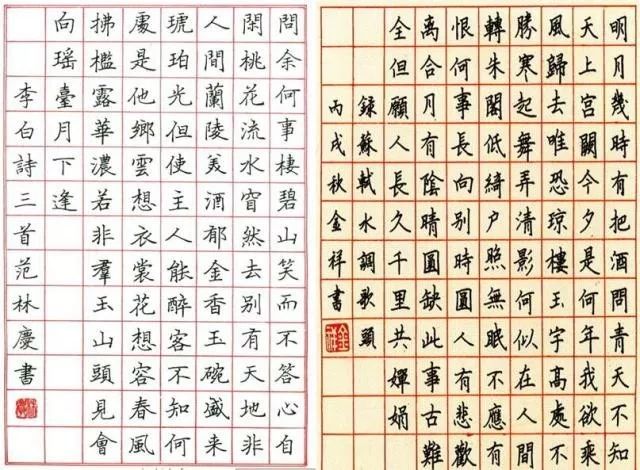 問余何事棲碧山笑而不答心自
閑桃花流水窅然去別有天地非
人間蘭陵美酒郁金香玉碗盛来
琥珀光但使主人能醉客不知何
處是他鄉雲想衣裳花想容春風
拂檻露華濃若非羣玉山頭見會
向瑤臺月下逢
李白詩三首范林慶書
明月幾時有把酒問青天不知
天上宮闕今夕是何年我欲乘
風歸去唯恐瓊樓玉宇高處不
勝寒起舞弄清影何似在人間
轉朱閣低綺户照無眠不應有
恨何事長向別時圓人有悲歡
離合月有陰晴圓缺此事古難
全但願人長久千里共嬋娟
錄蘇軾水調歌頭
丙戌秋金祥書